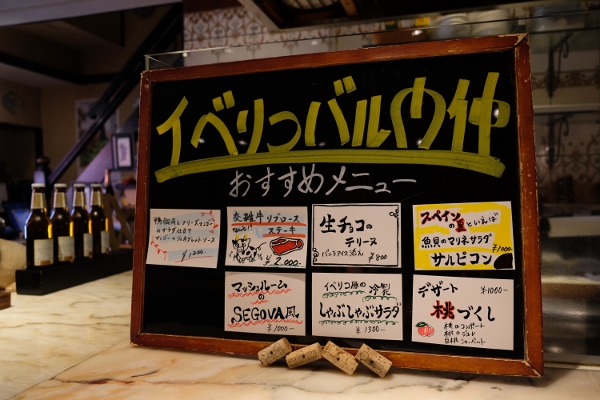 イベリコバル内仲
おすすめメニュー
交雑牛リブロース
ステーキ
¥2,000-
生チョコの
テリーヌ
¥800
スペインの夏といえば
魚貝のマリネサラダ
サルピコン
¥1000-
¥1,200
マッシュルームの
SEGOVIA風
¥1000-
イベリコ豚の冷製
しゃぶしゃぶサラダ
¥1300-
デザート ¥1000-
桃づくし
桃のコンポート
桃のジュレ